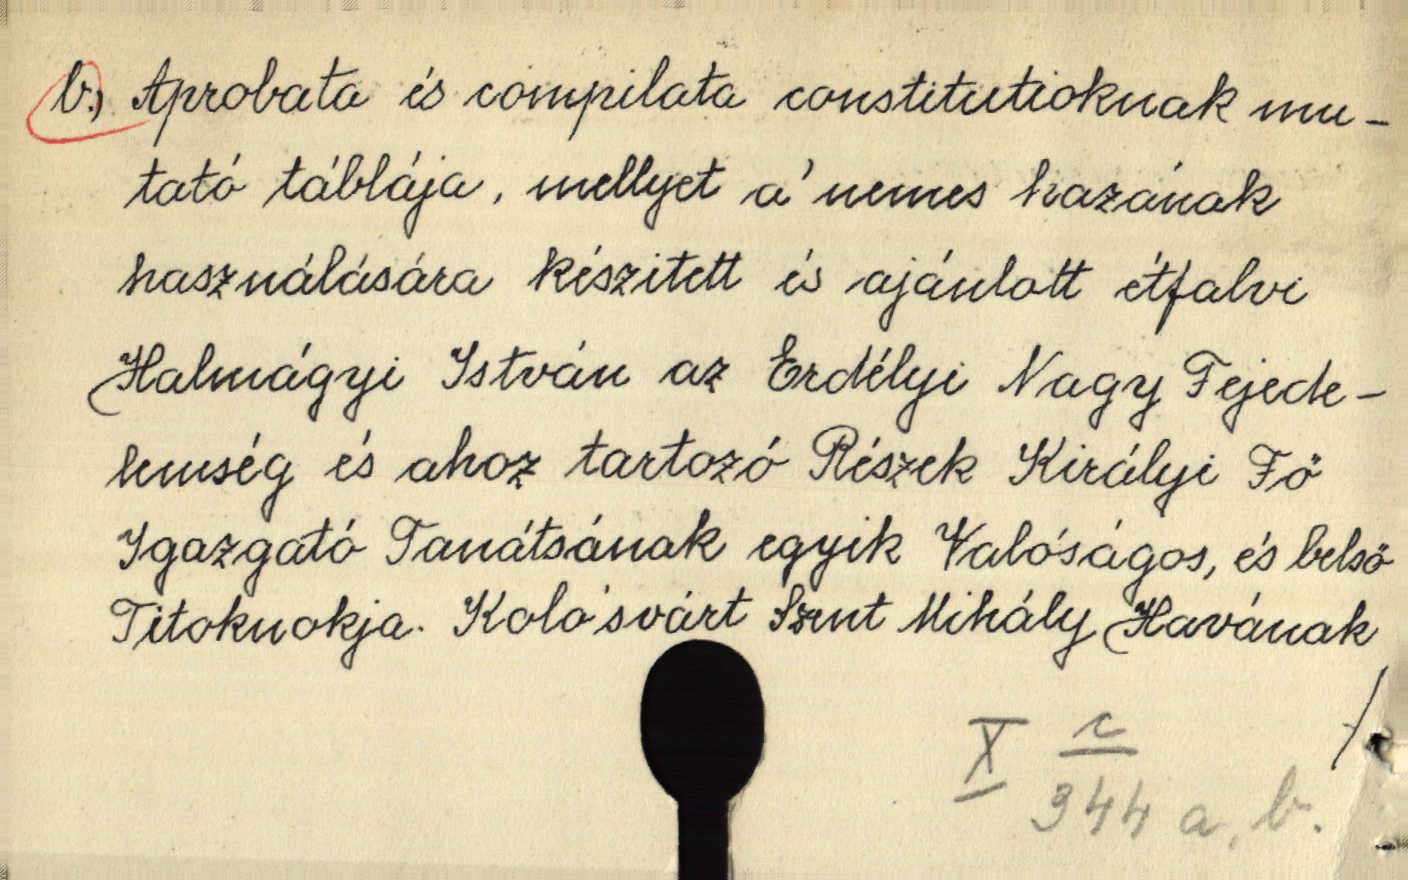 b.) Aprobata és compilata constitutioknak mu-
tató táblája, mellyet a' nemes hazának
használására készitett és ajánlott étfalvi
Halmágyi István az Erdélyi Nagy Fejede-
lemség és ahoz tartozó Részek Királyi Fő
Igazgató Tanátsának egyik Valóságos, és belső
Titoknokja. Kolo'svárt Szent Mihály Havának
X c
344 a, b.